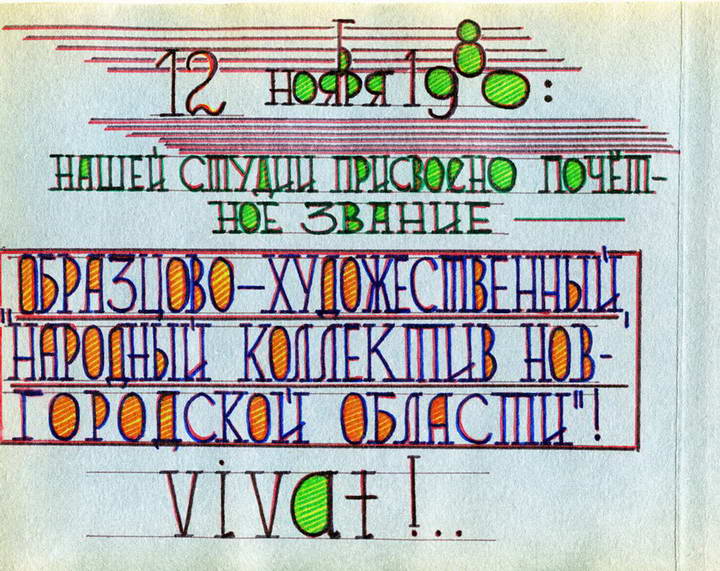 12 ноября 1980:
НАШЕЙ СТУДИИ ПРИСВОЕНО ПОЧЁТ-
НОЕ ЗВАНИЕ —
ОБРАЗЦОВО-ХУДОЖЕСТВЕННЫЙ,
"НАРОДНЫЙ КОЛЛЕКТИВ НОВ-
ГОРОДСКОЙ ОБЛАСТИ"!
vivat!..